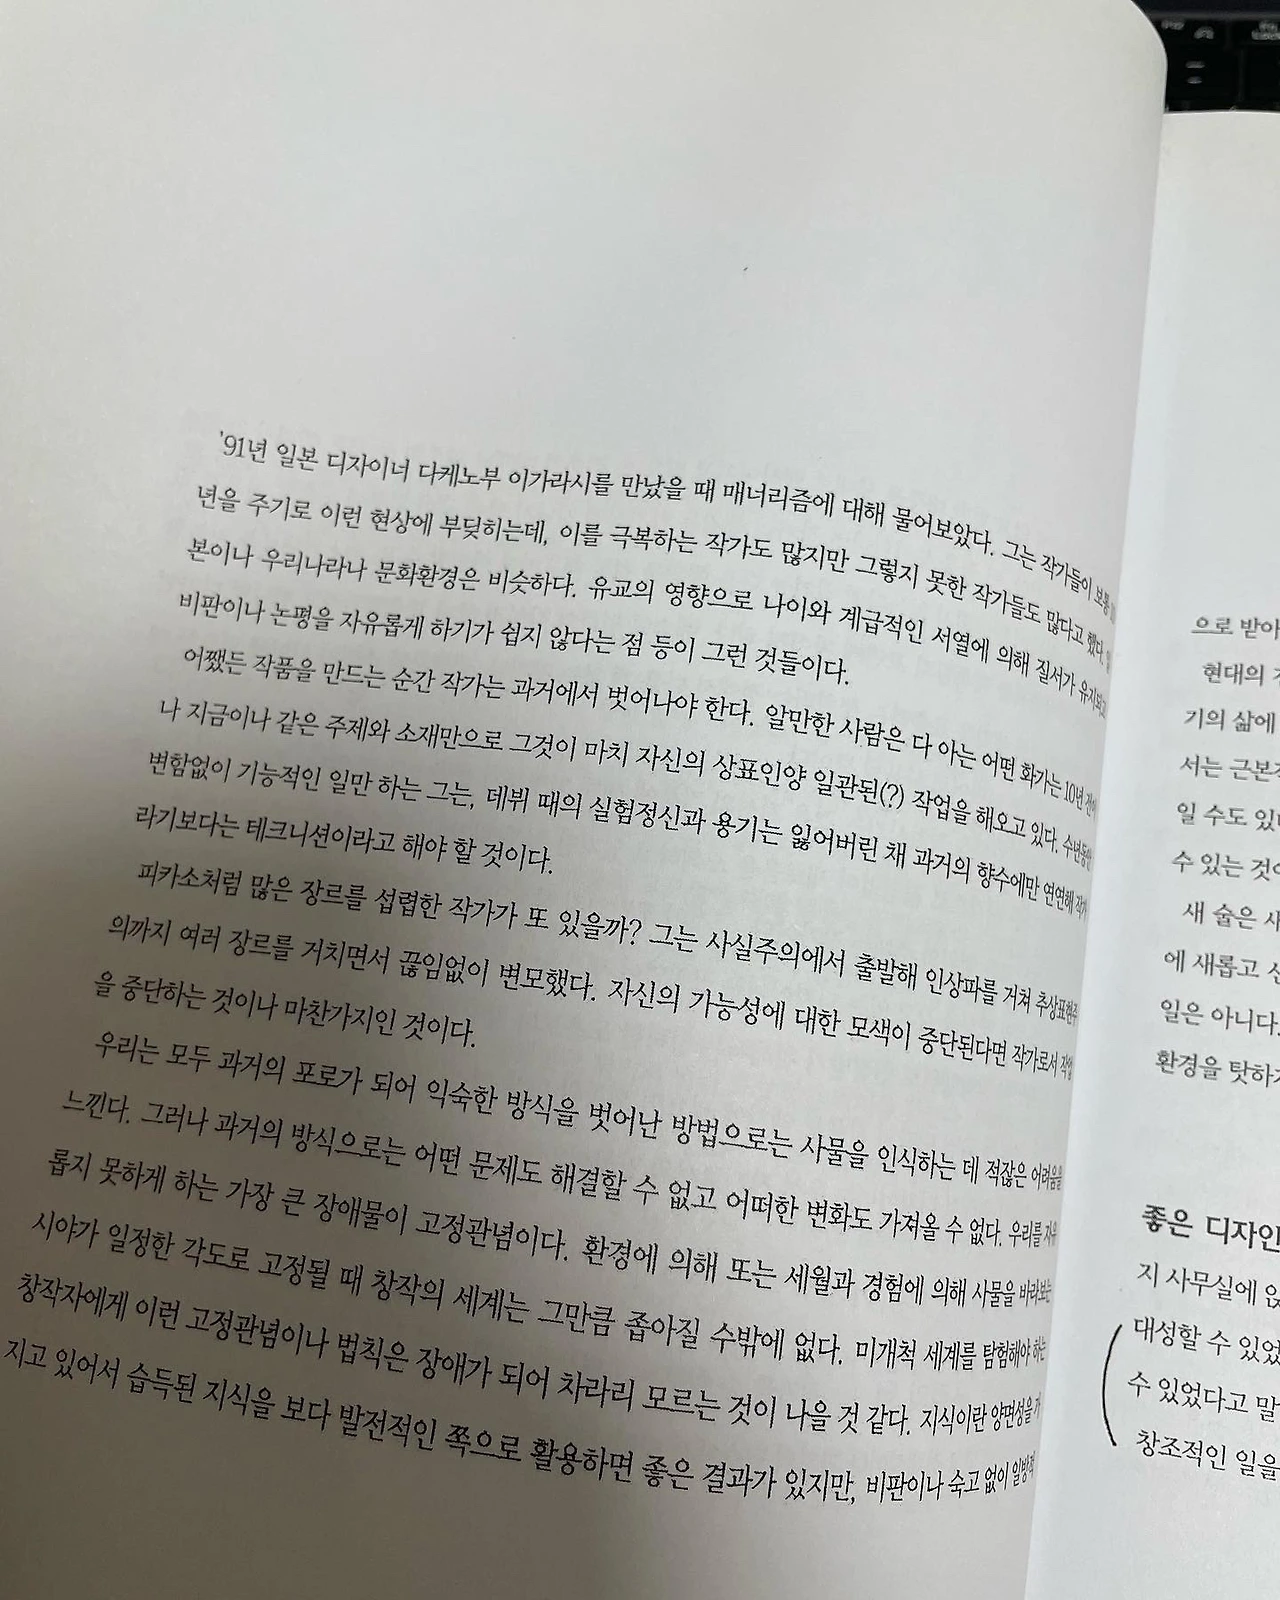 '91년 일본 디자이너 다케노부 이가라시를 만났을 때 매너리즘에 대해 물어보았다. 그는 작가들이 보통
년을 주기로 이런 현상에 부딪히는데, 이를 극복하는 작가도 많지만 그렇지 못한 작가들도 많다고 했다.
본이나 우리나라나 문화환경은 비슷하다. 유교의 영향으로 나이와 계급적인 서열에 의해 질서가
비판이나 논평을 자유롭게 하기가 쉽지 않다는 점 등이 그런 것들이다.
어쨌든 작품을 만드는 순간 작가는 과거에서 벗어나야 한다. 알만한 사람은 다 아는 어떤 화가는 10년 전이
나 지금이나 같은 주제와 소재만으로 그것이 마치 자신의 상표인양 일관된(?) 작업을 해오고 있다. 수년동안
변함없이 기능적인 일만 하는 그는, 데뷔 때의 실험정신과 용기는 잃어버린 채 과거의 향수에만 연연해 작가
라기보다는 테크니션이라고 해야 할 것이다.
피카소처럼 많은 장르를 섭렵한 작가가 또 있을까? 그는 사실주의에서 출발해 인상파를 거쳐 추상표현주
의까지 여러 장르를 거치면서 끊임없이 변모했다. 자신의 가능성에 대한 모색이 중단된다면 작가로서 작업
을 중단하는 것이나 마찬가지인 것이다.
우리는 모두 과거의 포로가 되어 익숙한 방식을 벗어난 방법으로는 사물을 인식하는 데 적잖은 어려움을
느낀다. 그러나 과거의 방식으로는 어떤 문제도 해결할 수 없고 어떠한 변화도 가져올 수 없다. 우리를 자유
롭지 못하게 하는 가장 큰 장애물이 고정관념이다. 환경에 의해 또는 세월과 경험에 의해 사물을 바라보는
시야가 일정한 각도로 고정될 때 창작의 세계는 그만큼 좁아질 수밖에 없다. 미개척 세계를 탐험해야 하는
창작자에게 이런 고정관념이나 법칙은 장애가 되어 차라리 모르는 것이 나을 것 같다. 지식이란 양면성을 가
지고 있어서 습득된 지식을 보다 발전적인 쪽으로 활용하면 좋은 결과가 있지만, 비판이나 숙고 없이 일방적
으로 받아
현대의
기의 삶에
서는 근본
일 수도 있
수 있는 것
새 술은 새
에 새롭고
일은 아니다.
환경을 탓하
좋은 디자인
지 사무실에
대성할 수 있었
수 있었다고 말
창조적인 일을